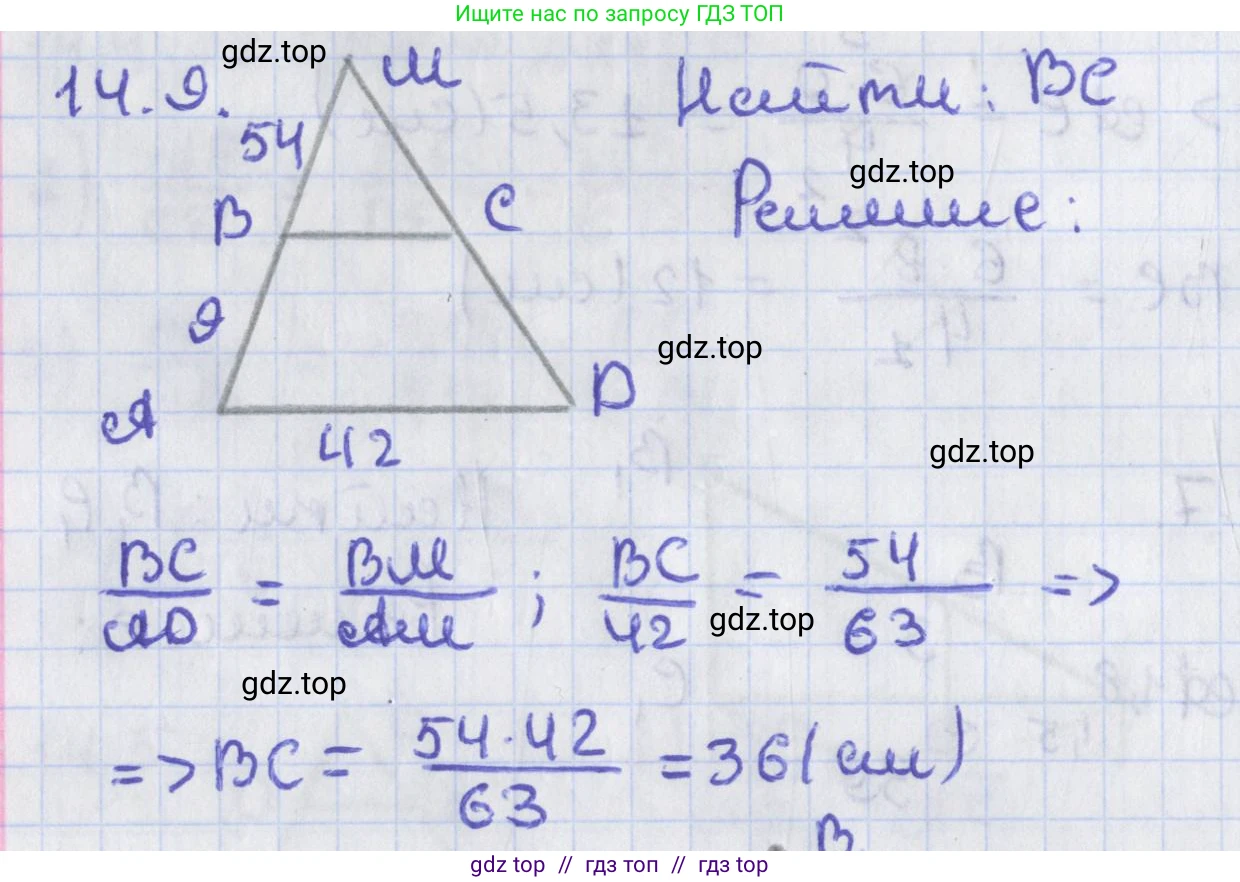 Ищите нас по запросу ГДЗ ТОП
gdz.top
14.9.
M
Найти: BC
54
gdz.top
Решение:
B
C
9
gdz.top
A
D
42
gdz.top
BC/AD = BM/AM ; BC/42 = 54/63 =>
gdz.top
gdz.top
=> BC = 54·42/63 = 36 (см)
B
gdz top // гдз топ // гдз top